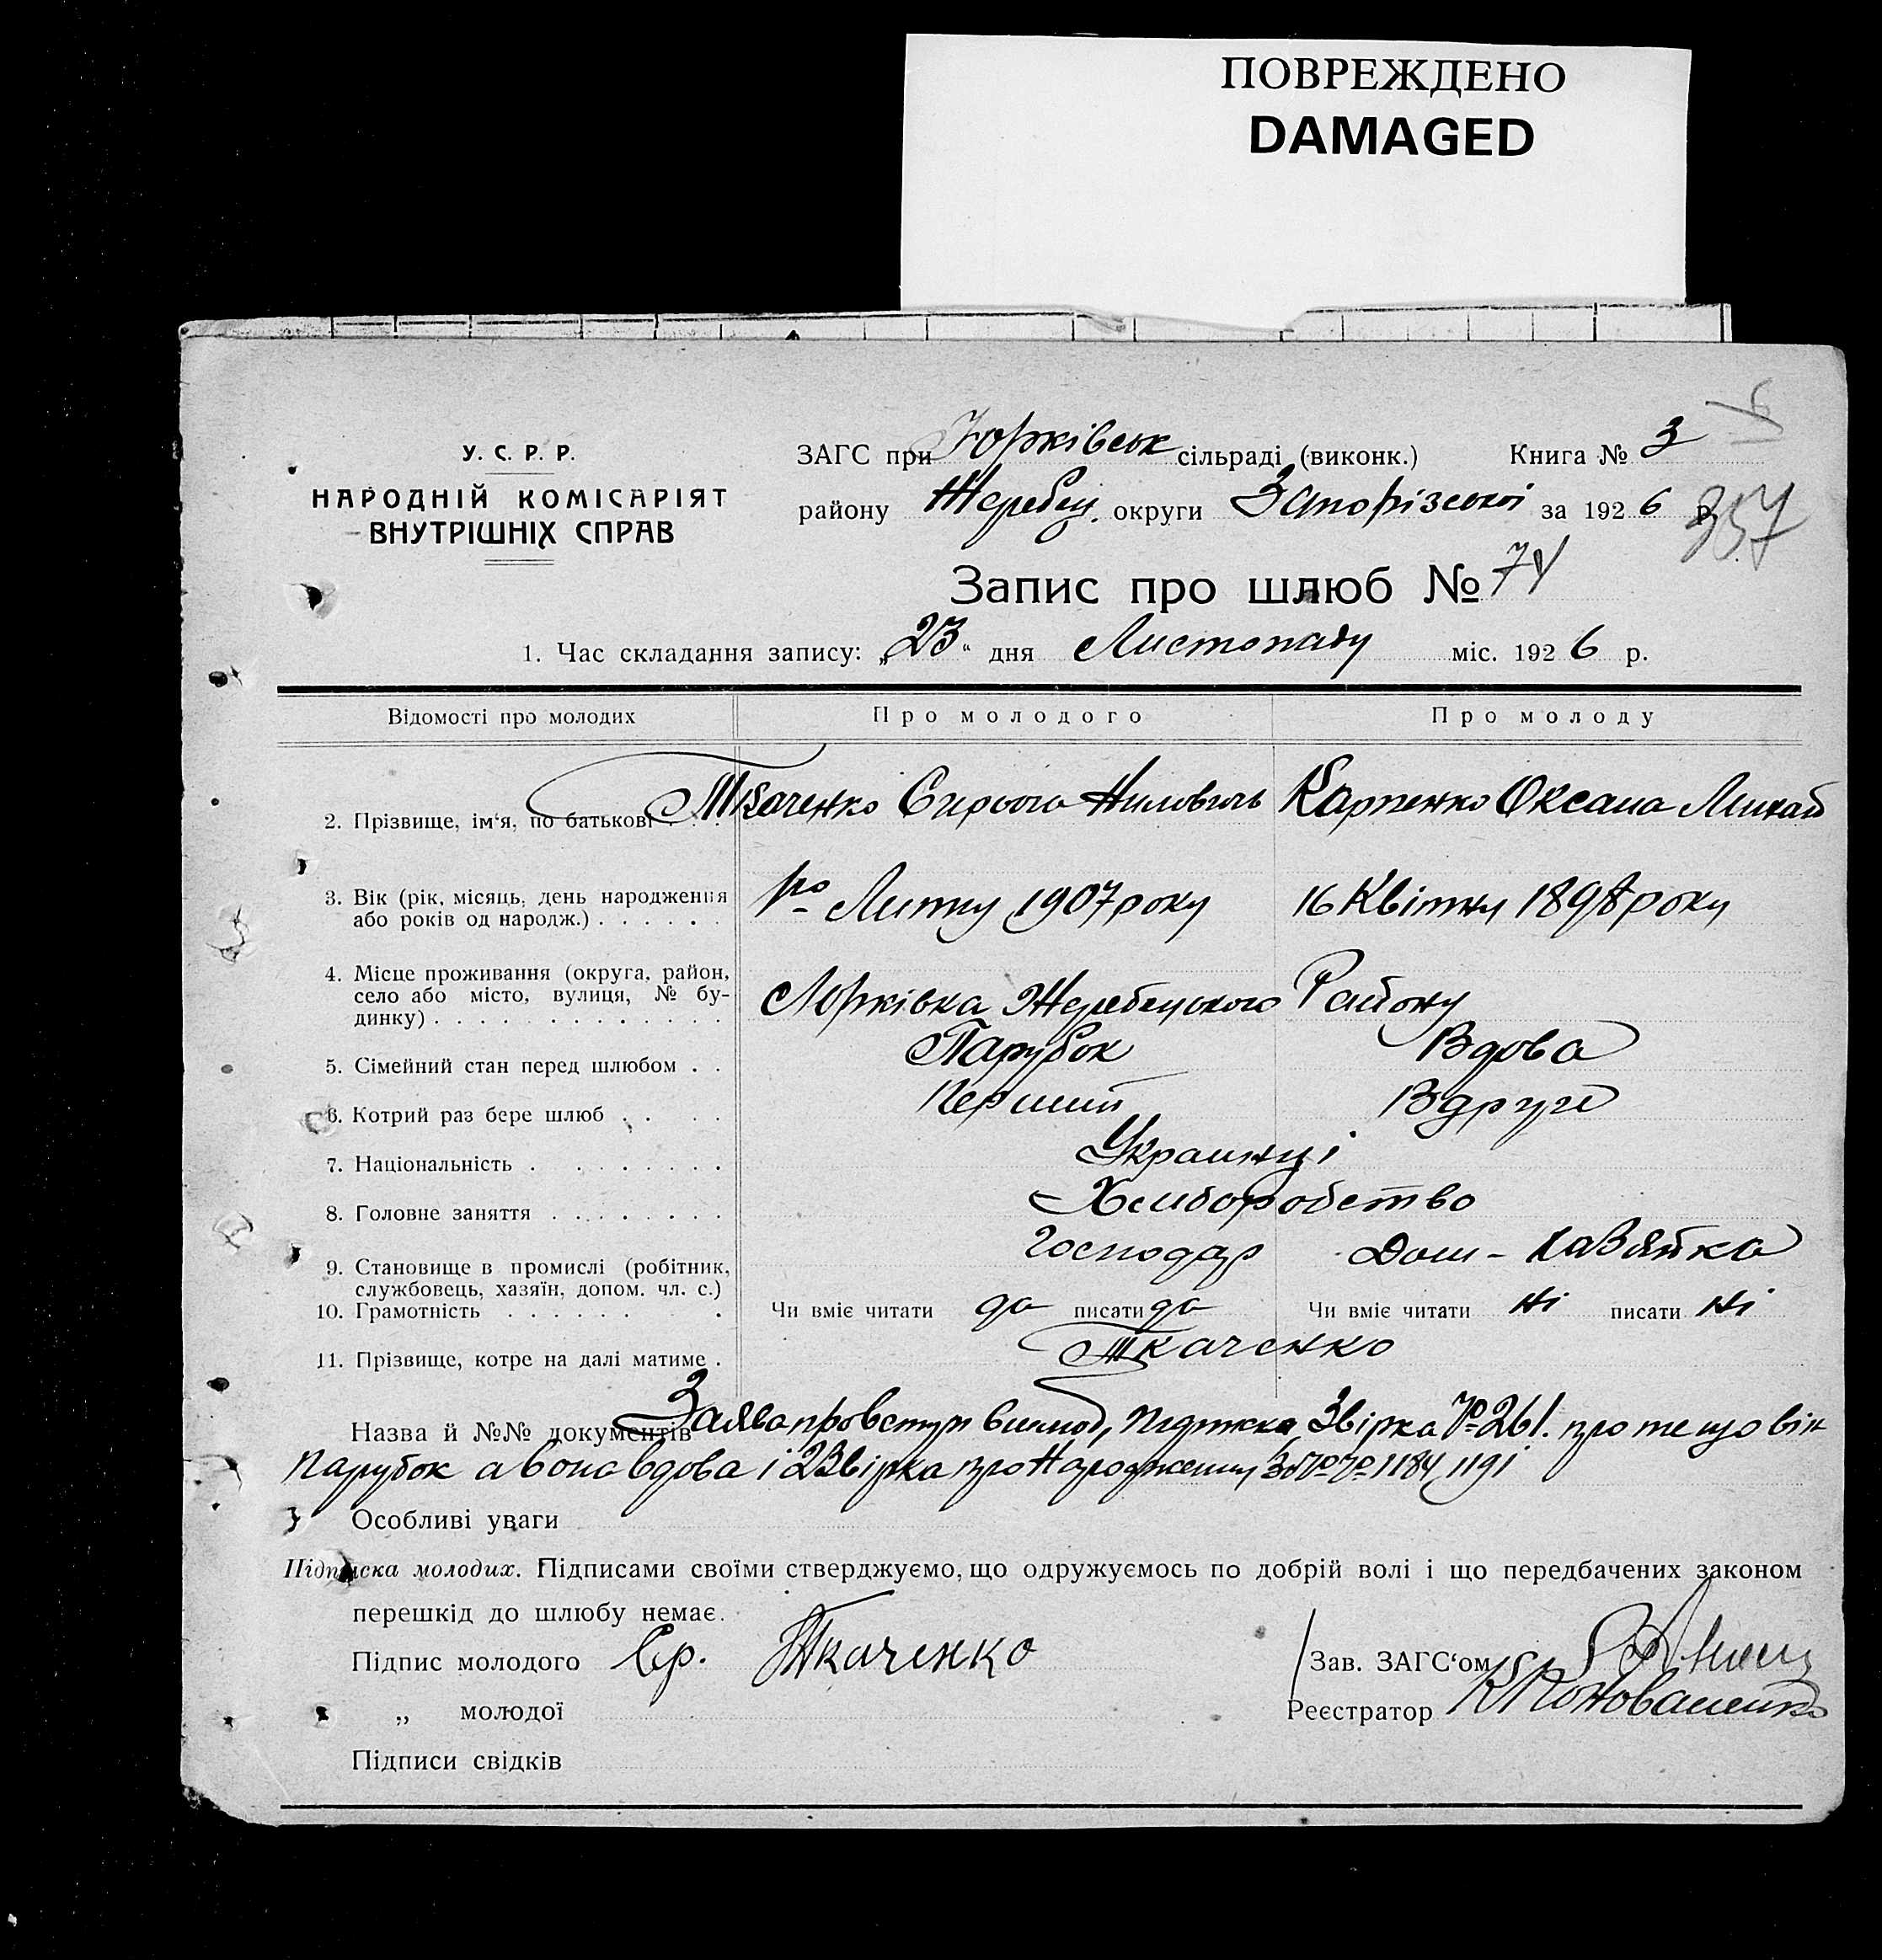 ПОВРЕЖДЕНО
DAMAGED
У. С. Р. Р.
НАРОДНІЙ КОМІСАРІЯТ
ВНУТРІШНІХ СПРАВ
ЗАГС при Юрківськ сільраді (виконк.) Книга № 3
району Жеребец. округи Запорізської за 1926 р.
357
Запис про шлюб № 74
1. Час складання запису: „23“ дня Листопаду міс. 1926 р.
Відомості про молодих Про молодого Про молоду
2. Прізвище, ім‘я, по батькові . . . Ткаченко Нилович Карпенко Оксана Михай
3. Вік (рік, місяць, день народження
або років од народж.) . . . . . . Лютну 1907 року 16 Квітня 1898 року
4. Місце проживання (округа, район,
село або місто, вулиця, № бу-
динку) . . . . . . . . . . . . . Юрківка Жеребецького Району
5. Сімейний стан перед шлюбом . . Парубок Вдова
6. Котрий раз бере шлюб . . . . Перший Вдруге
7. Національність . . . . . . . . Украинці
8. Головне заняття . . . . . . . . Хлиборобство
9. Становище в промислі (робітник,
службовець, хазяїн, допом. чл. с.) Господар Дом-хазяйка
10. Грамотність . . . . . . . Чи вміє читати да писати да Чи вміє читати ні писати ні
11. Прізвище, котре на далі матиме . Ткаченко
Назва й №№ документів Заява про вступ Звірка № 261. про те що він
парубок а вона вдова і 2 Звірка про Народження за №№ 1184, 1191
Особливі уваги
Підписка молодих. Підписами своїми стверджуємо, що одружуємось по добрій волі і що передбачених законом
перешкід до шлюбу немає.
Підпис молодого Ср. Ткаченко Зав. ЗАГС‘ом
„ молодої Реєстратор
Підписи свідків